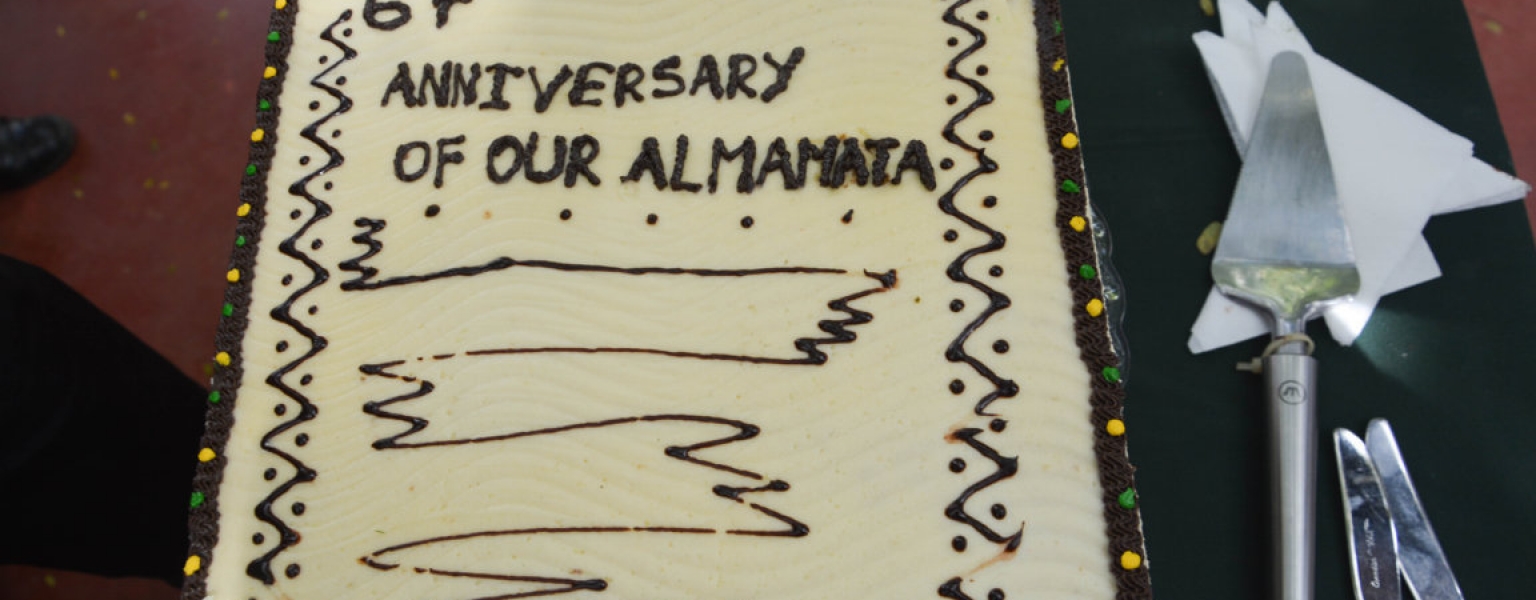 ANNIVERSARY
OF OUR ALMAMATA